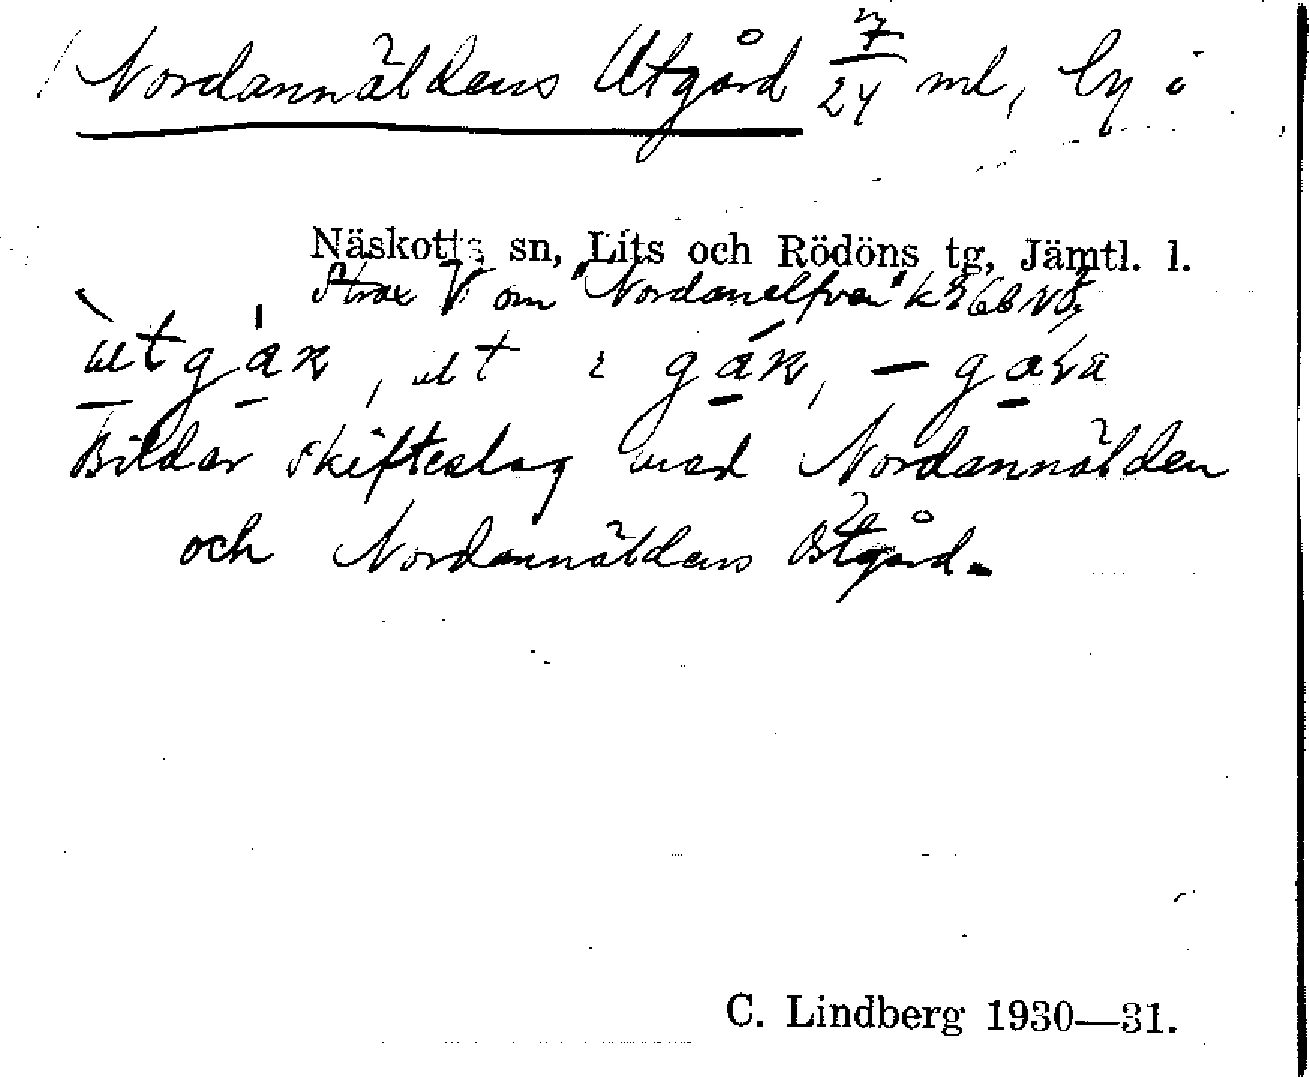 Nordannäldens Utgård 7/24 ml, by i
Näskotts sn, Lits och Rödöns tg, Jämtl. l.
Strax V om "Nordanelfven" k
utgáʀ, ut i gáʀ, – gaʀa
Bildar skifteslag med Nordannälden
och Nordannäldens Östgård.
C. Lindberg 1930—31.